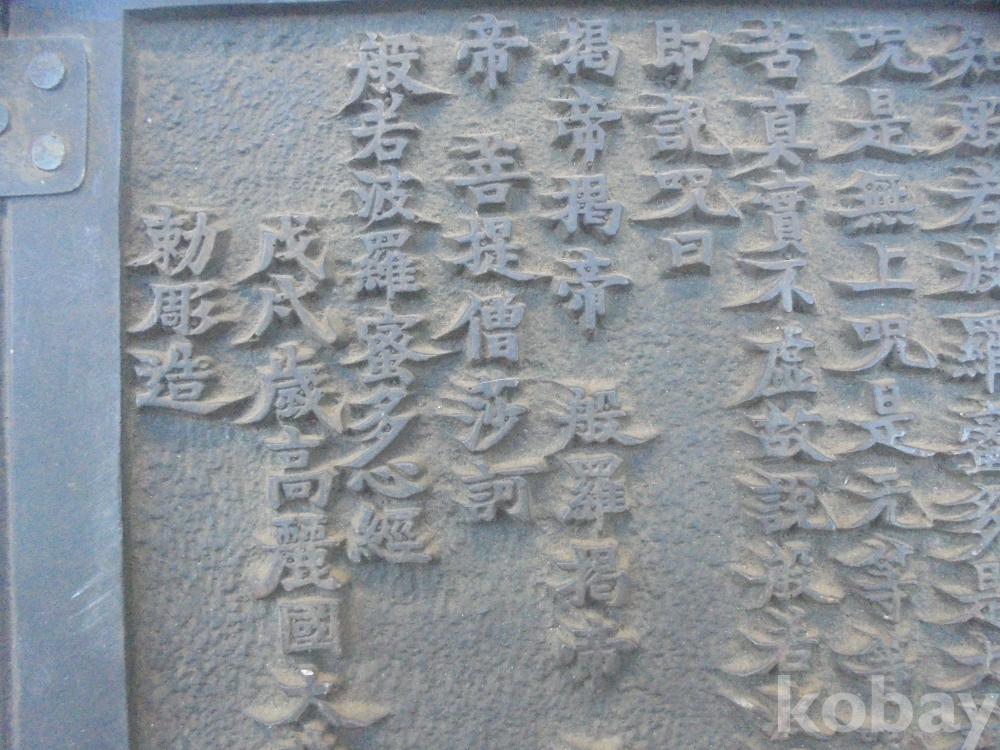 般若波羅蜜多是大
咒是無上咒是无等等
苦真實不虛故說般若
即說咒曰
揭帝揭帝 般羅揭帝
帝 菩提僧莎訶
般若波羅蜜多心經
戊戌歲高麗國大
勅彫造
kobay